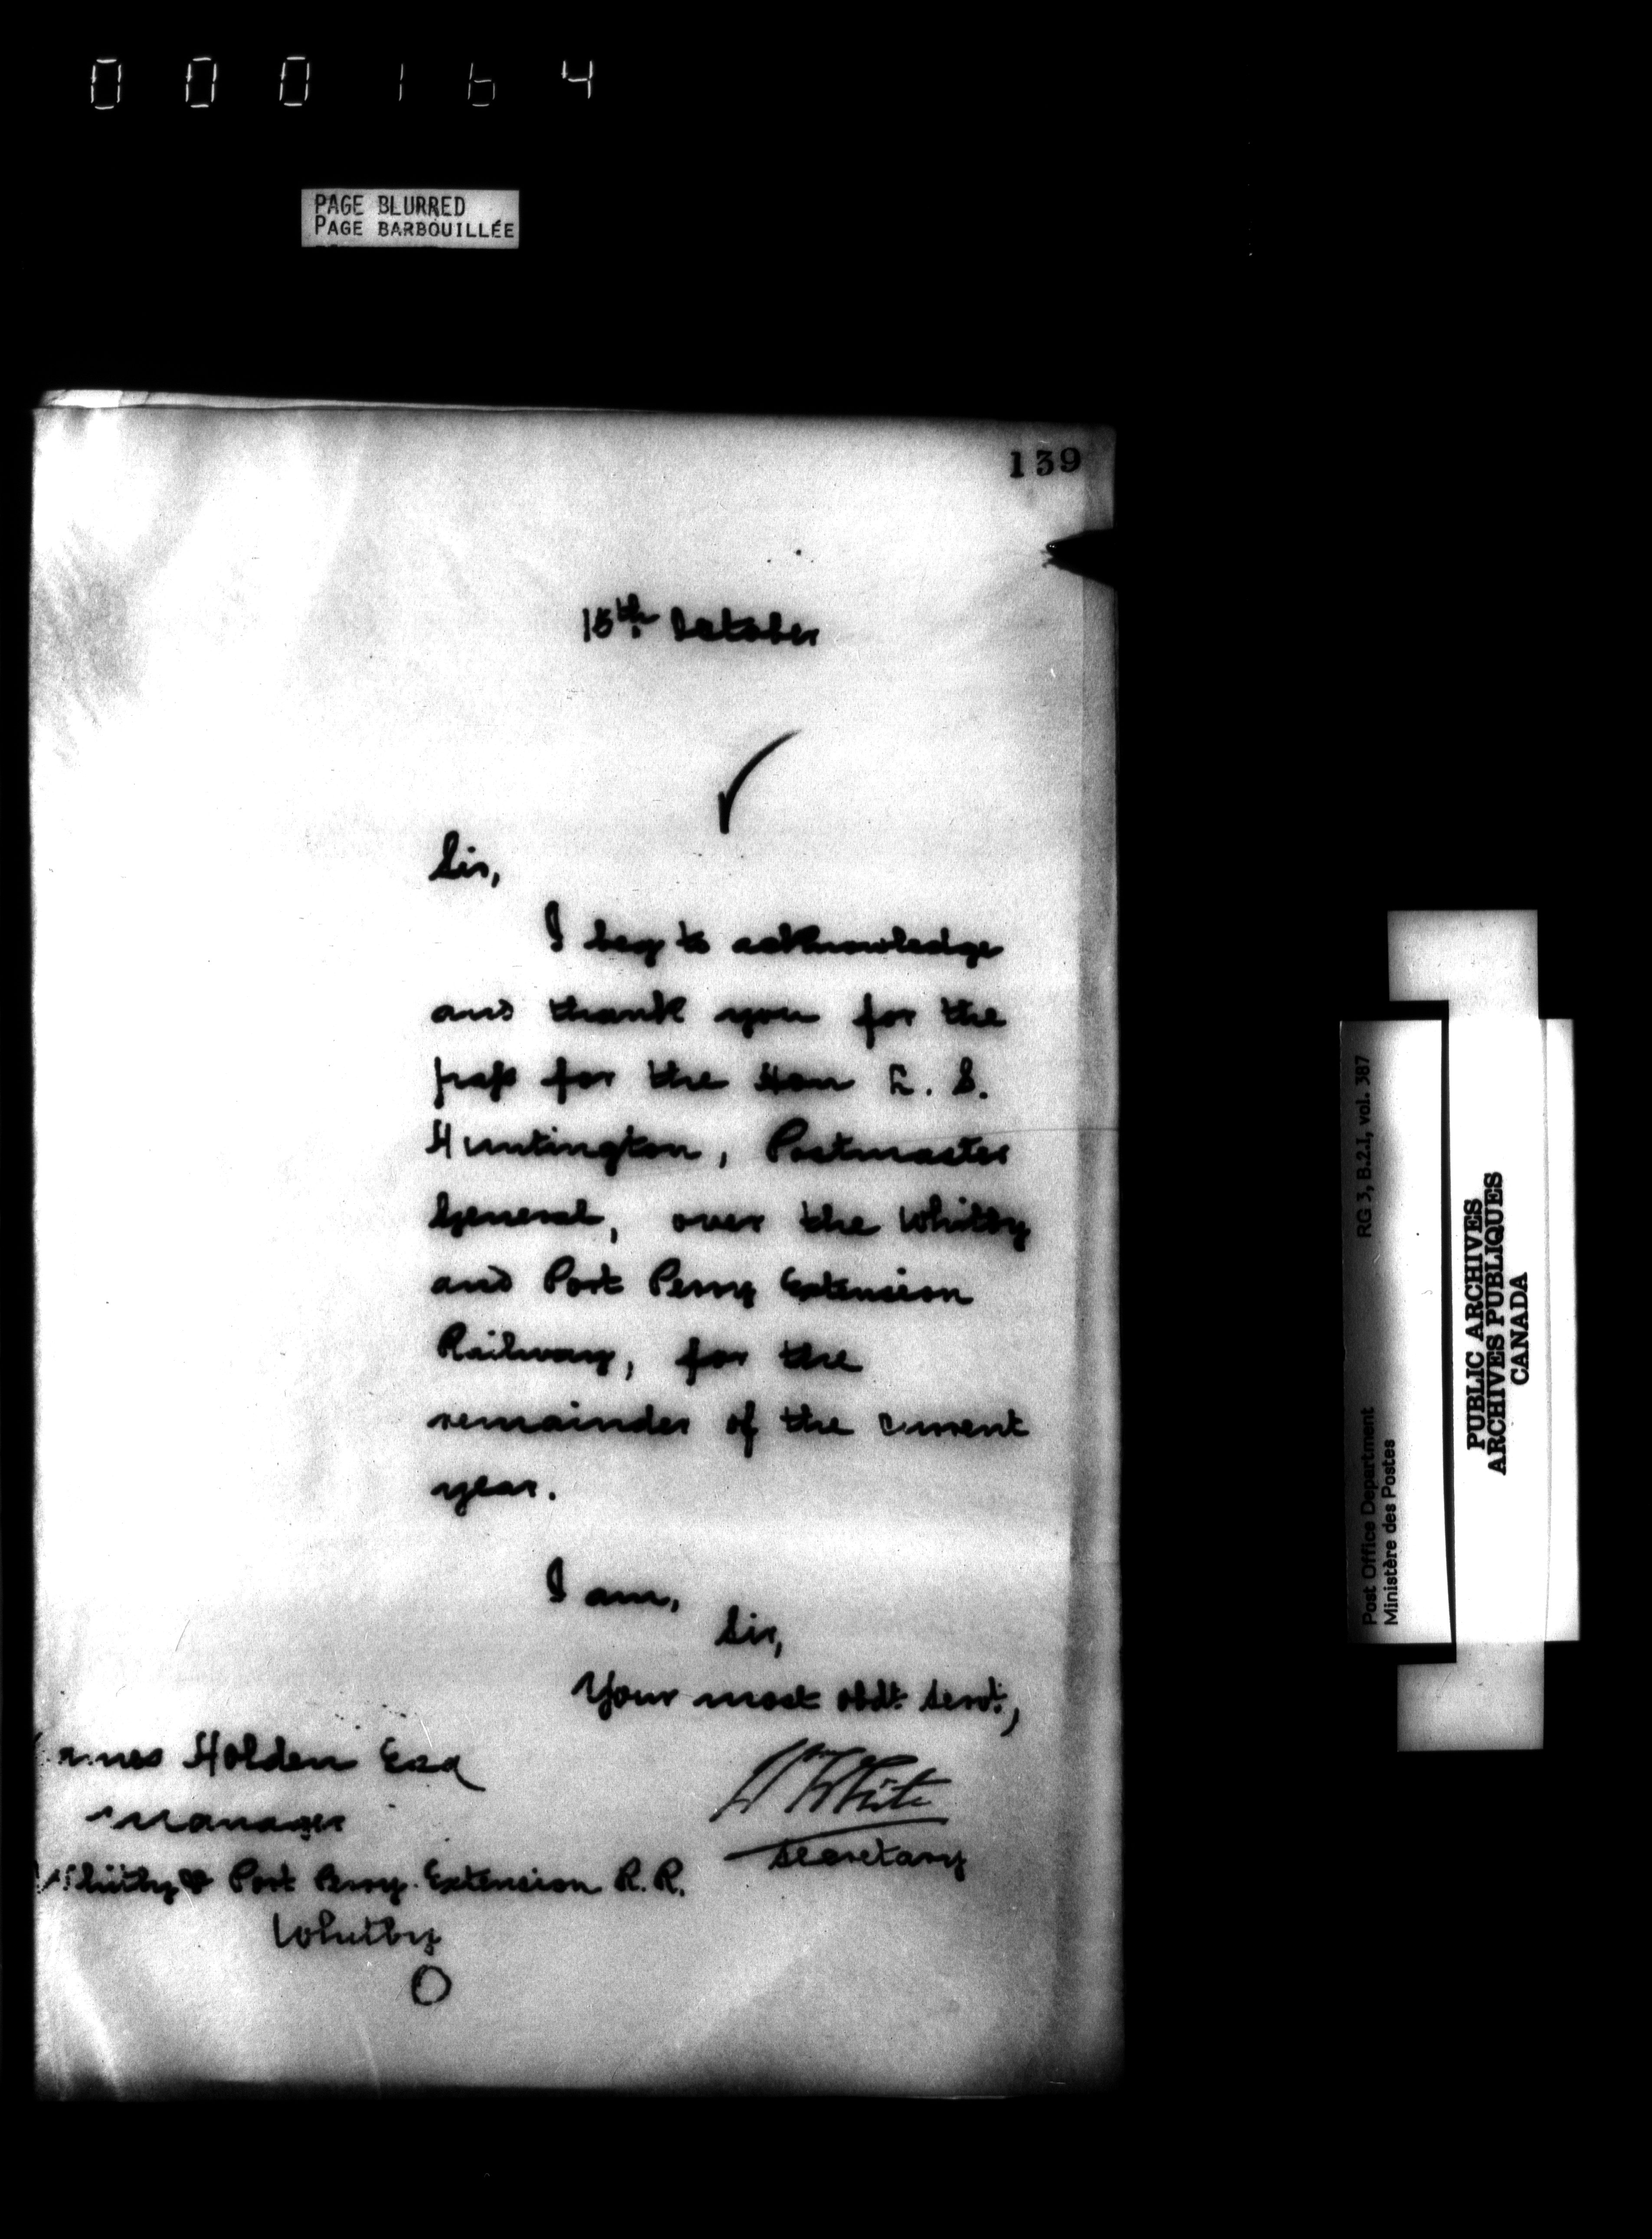 000164
PAGE BLURRED
PAGE BARBOUILLÉE
139
15th October
Sir,
I beg to acknowledge
and thank you for the
pass for the Hon L. S.
Huntington, Postmaster
General, over the Whitby
and Port Perry Extension
Railway, for the
remainder of the current
year.
I am,
Sir,
Your most obdt. servt.,
James Holden Esq
Manager
Whitby & Port Perry Extension R.R.
Whitby
O
Wm White
Secretary
RG 3, B.2.1, vol. 387
Post Office Department
Ministère des Postes
PUBLIC ARCHIVES
ARCHIVES PUBLIQUES
CANADA